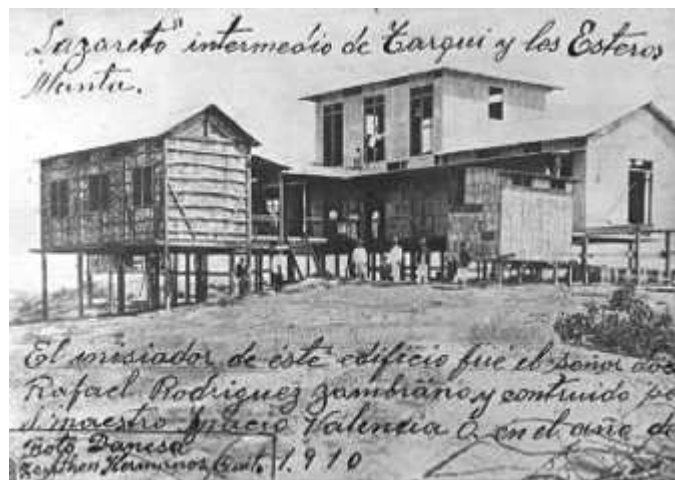 Lazareto" intermedio de Tarqui y los Esteros
Manta.
El inisiador de éste edificio fué el señor doc
Rafael Rodriguez Zambrano, y contruido po
el maestro Ignacio Valencia O, en el año de
Foto Danesa
Hermanos Quito 1.910